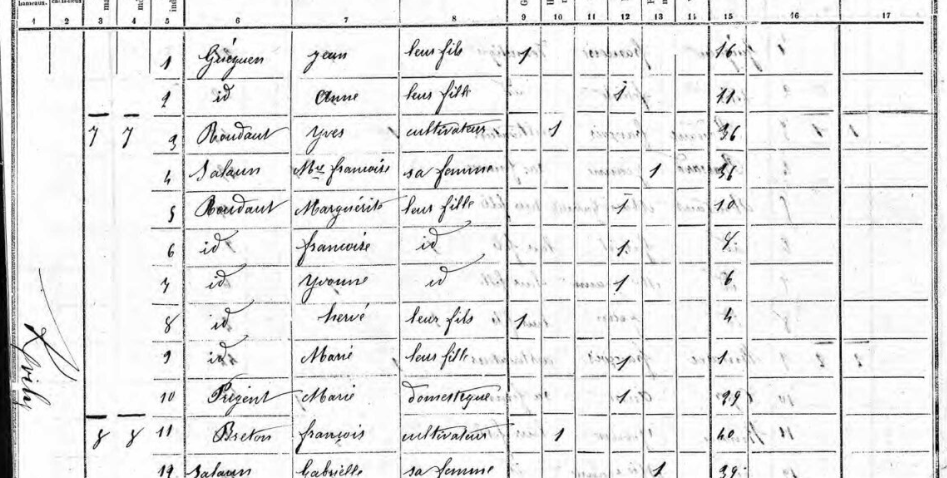 1 2 3 4 5 6 7 8 9 10 11 12 13 14 15 16 17
1 Guéguen Jean leur fils 1 16
2 id Anne leur fille 1 11
7 7 3 Roudaut Yves cultivateur 1 36
4 Salaun Mie francoise sa femme 1 36
5 Roudaut Marguérite leur fille 1 10
6 id francoise id 1 8
7 id Yvonne id 1 6
8 id hervé leur fils 1 4
9 id Marie leur fille 1 1
10 Prigent Marie domestique 1
8 8 11 Breton françois cultivateur 1 40
12 Salaun Gabrielle sa femme 1 39